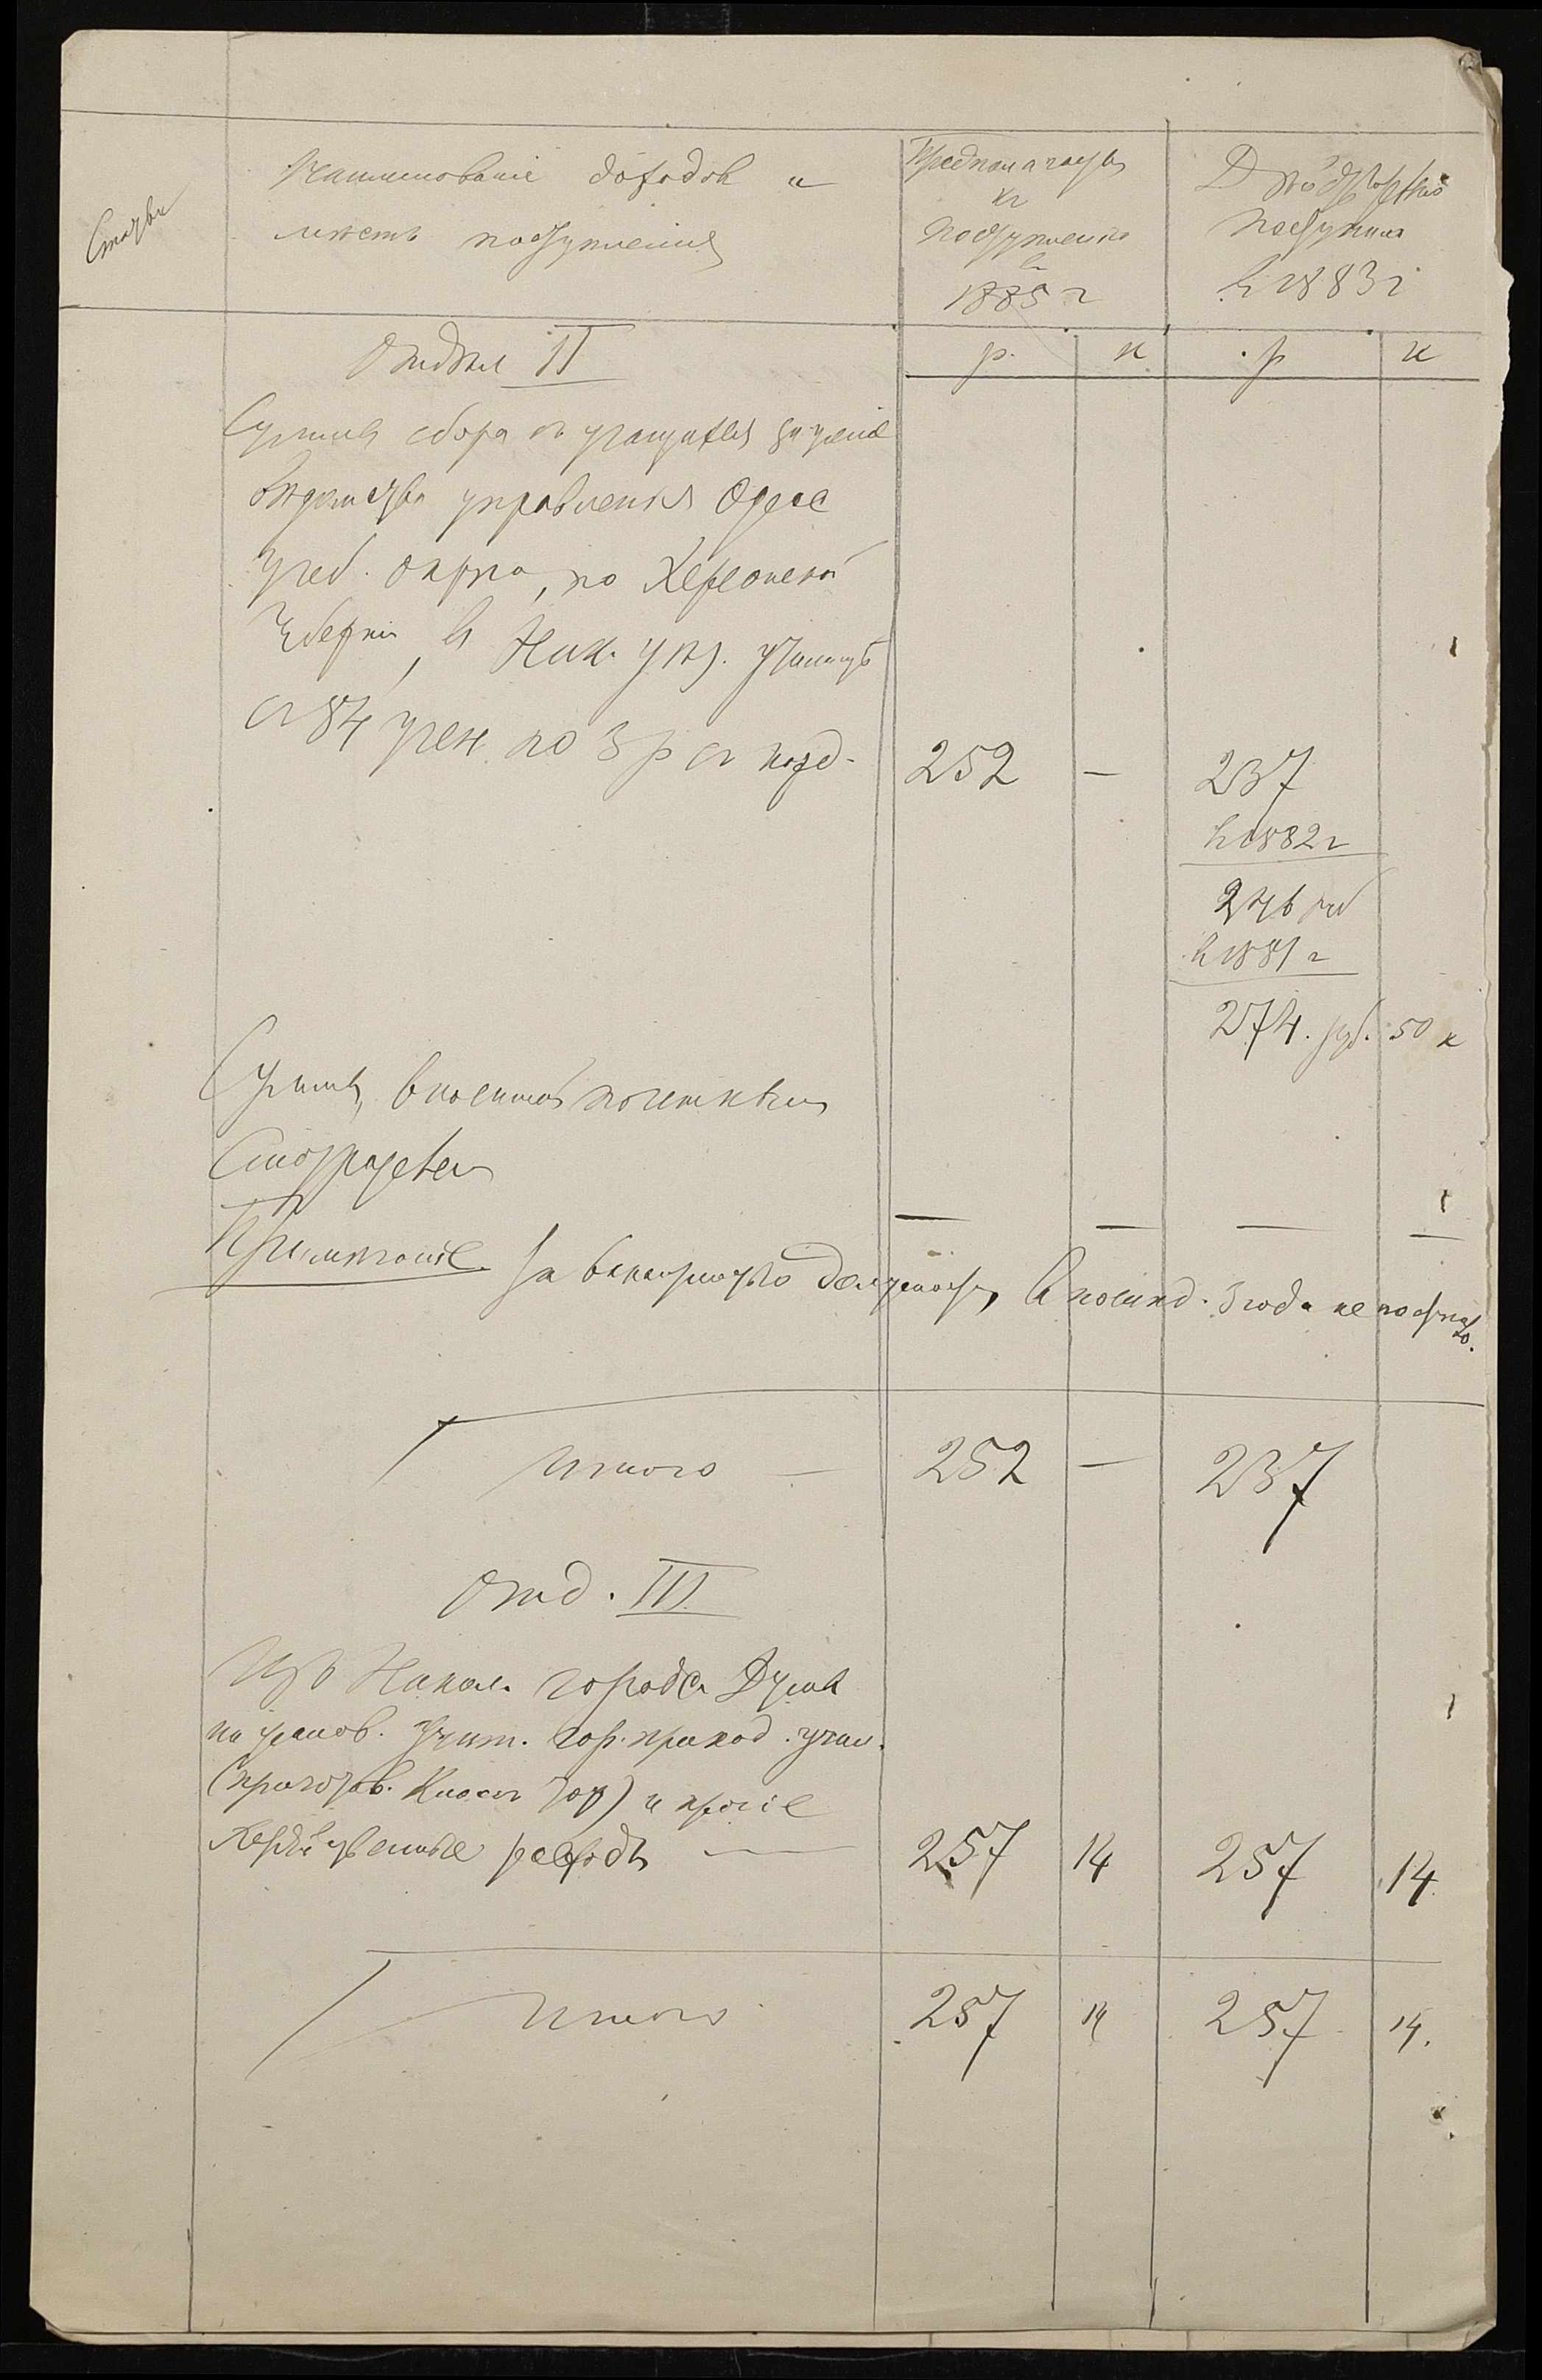 Статьи
Наименованіе доходовъ и
мѣстъ поступленія
Предполагается
къ
поступленію
въ
1885 г
Дѣйствительно
поступило
въ 1883 г
р.
к
р
к
Отдѣл II
Суммы сбора съ учащихся за ученіе
вѣдомства управленія Одесс
учеб. округа, по Херсонской
Губерніи, въ Ник. уѣз. училищѣ
съ 84 учен. по 3 р съ кажд.
252
—
237
въ 1882 г
246 руб
въ 1881 г
274. руб. 50 к
Суммы, вносимыя почетнымъ
Смотрителемъ
—
—
—
—
Примѣчаніе. За вакантностью должности, въ послѣд. 3 года не поступало.
Итого —
252
—
237
Отд. III
Изъ Никол. городс. Думы
на жалов. Учит. гор. приход. учил.
(приготов. класса) и прочіе
хозяйственные расходы —
257
14
257
14.
Итого
257
14
257
14.